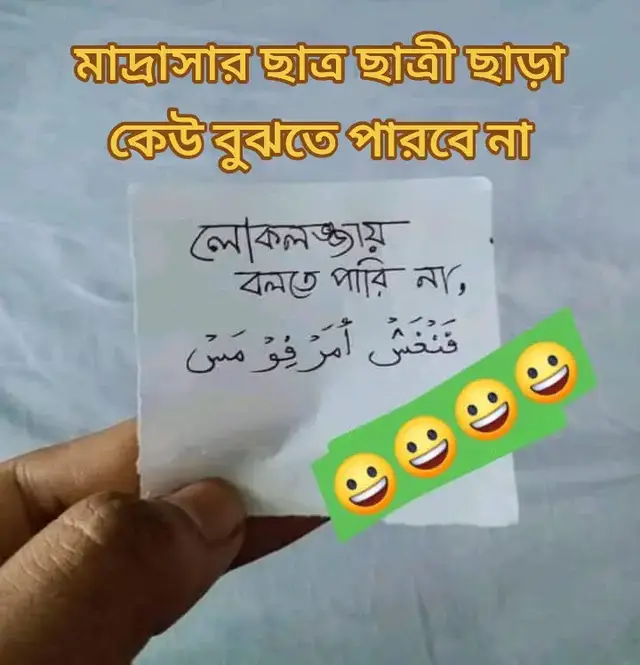 মাদ্রাসার ছাত্র ছাত্রী ছাড়া
কেউ বুঝতে পারবে না
লোকলজ্জায়
বলতে পারি না,
فَنْخَشْ أَمَرْ فِوْ مَسْ